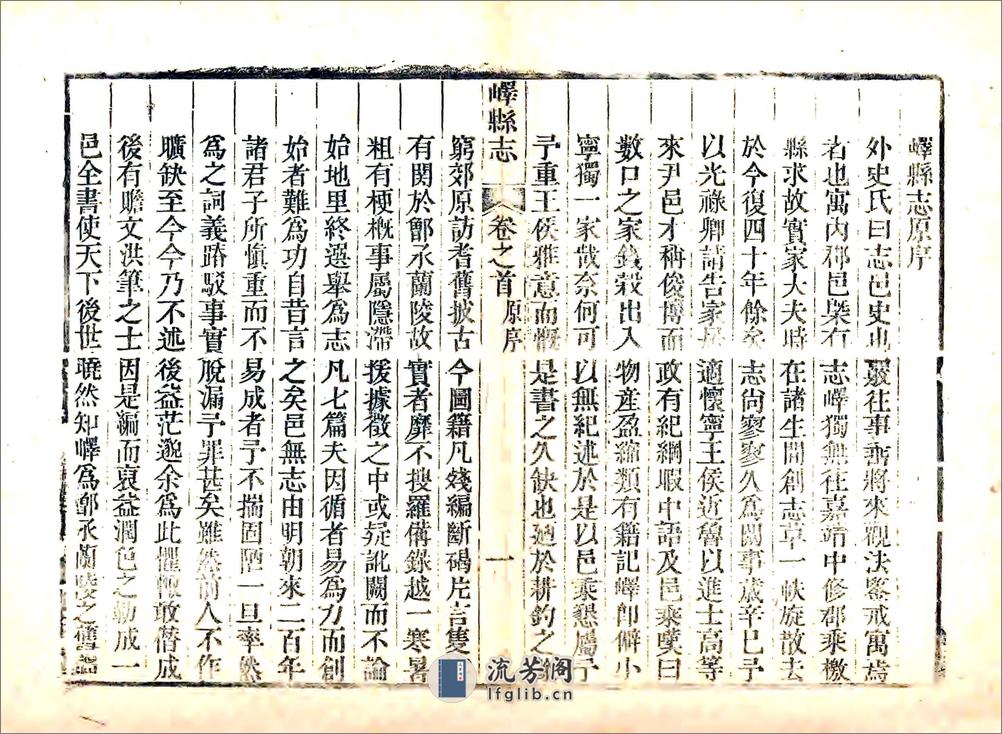 嶧縣志原序
外史氏曰志邑史也嚴往事垂將來觀法鑒戒寓焉
者也寓內郡邑槩有志嶧獨無往嘉靖中修郡乘檄
縣求故實家大夫時在諸生間創志草一帙旋散去
於今復四十年餘矣志尙寥寥久爲闕事歲辛巳予
以光祿卿請告家居適懷寧王侯近魯以進士高等
來尹邑才稱俊博而政有紀綱暇中語及邑乘嘆曰
數口之家錢穀出入物產盈縮類有籍記嶧卽僻小
寧獨一家哉奈何可以無紀述於是以邑乘懇屬予
予重王侯雅意而慨是書之久缺也廼於耕釣之
嶧縣志 卷之首 原序 一
窮郊原訪耆舊披古今圖籍凡殘編斷碣片言隻
有関於鄫承蘭陵故實者靡不搜羅偹錄越一寒暑
粗有梗概事屬隱滯援據徵之中或疑訛闕而不論
始地里終選舉爲志凡七篇夫因循者易爲力而創
始者難爲功自昔言之矣邑無志由明朝來二百年
諸君子所慎重而不易成者予不揣固陋一旦率然
爲之詞義踳駁事實脫漏予罪甚矣雖然前人不作
曠缺至今今乃不述後益茫邈余爲此懼輒敢僭成
後有贍文洪筆之士因是編而裒益潤色之勒成一
邑全書使天下後世曉然知嶧爲鄫承蘭陵之舊
流芳閣
lfglib.cn